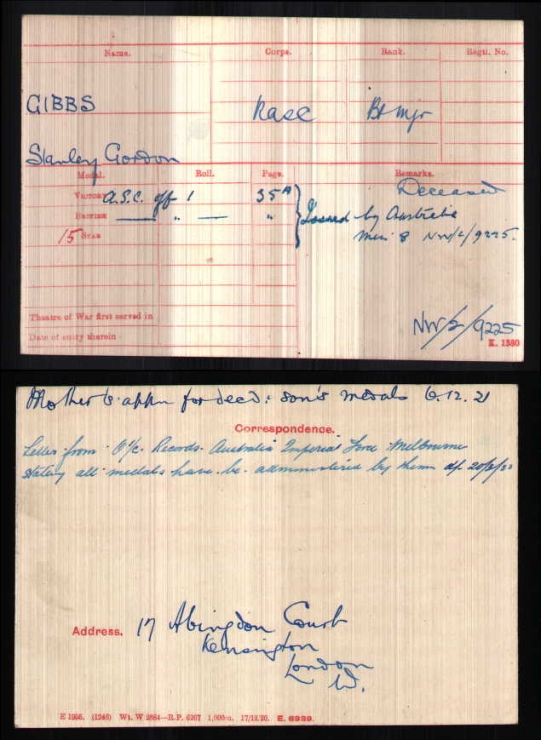 Name. Corps. Rank. Regtl. No.
GIBBS
RASC Bt Mjr
Stanley Gordon
Medal. Roll. Page. Remarks.
Deceased
VICTORY A.S.C. off 1 35A
Issued by Australia
BRITISH " "
15 STAR
NW/2/9225.
Theatre of War first served in
Date of entry therein
NW/2/9225
K. 1380
Mother's appn for decd: son's medals 6.12.21
Correspondence.
Letter from O/c. Records. Australia Imperial Force Melbourne
stating all medals have be administered by them
Address. 17 Abingdon Court
Kensington
London
W.
E 1956. (1246) Wt. W 2864—R.P. 6267 1,000m. 17/12/20. E. 6939.